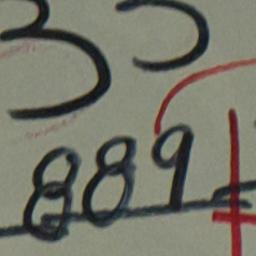 35
889